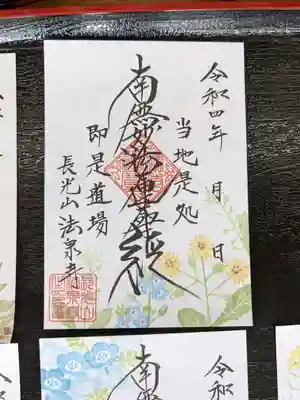 令和四年 月 日
当地是処
南無妙法蓮華経
即是道場
長光山 法泉寺
南無
令和